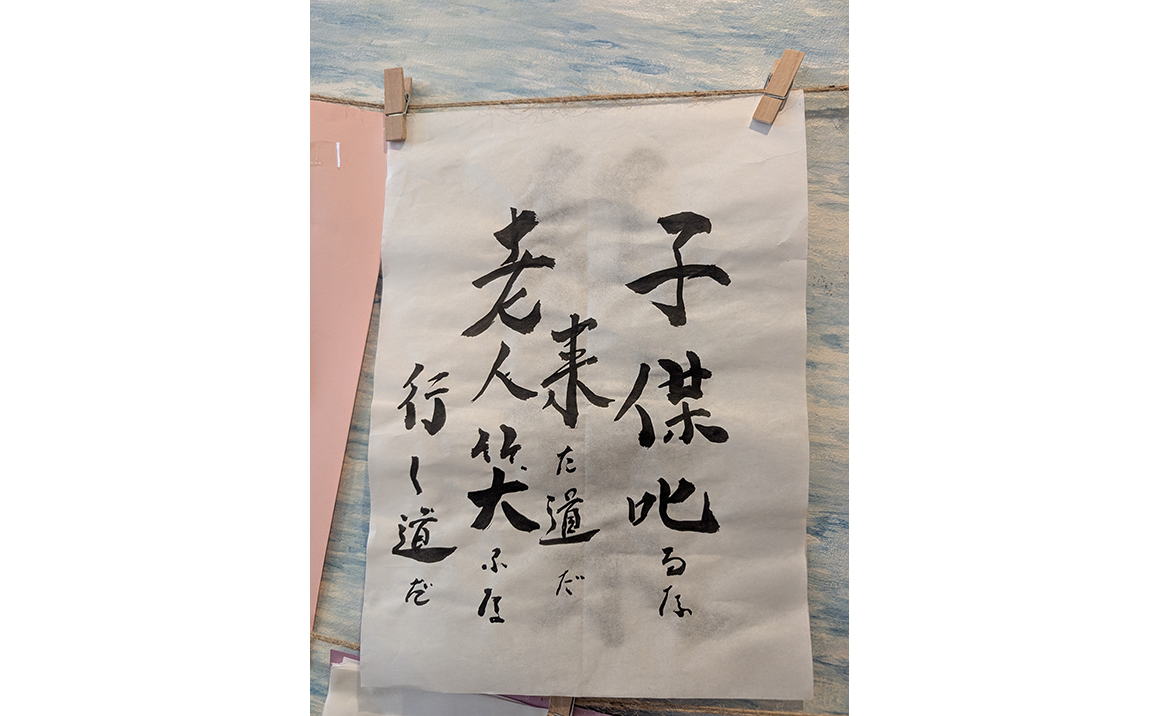 子供叱るな
来た道だ
老人笑ふな
行く道だ